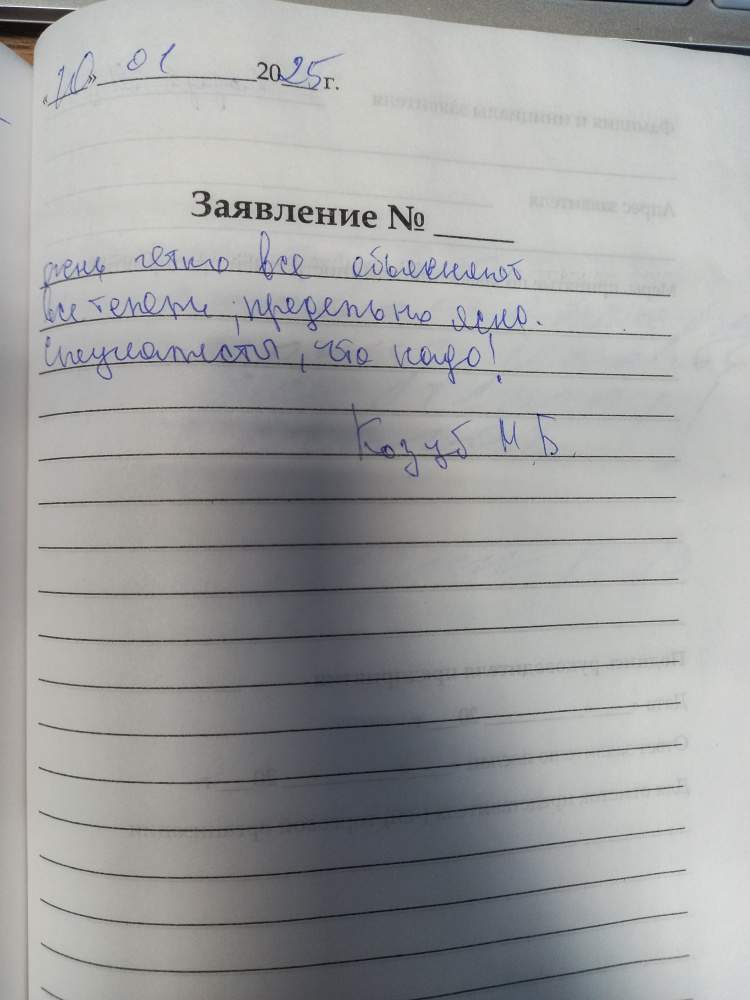 «10» 01 2025 г.
Заявление № ____
очень четко все объясняют
все теперь предельно ясно.
Специалисты, что надо!
Козуб М.Б.